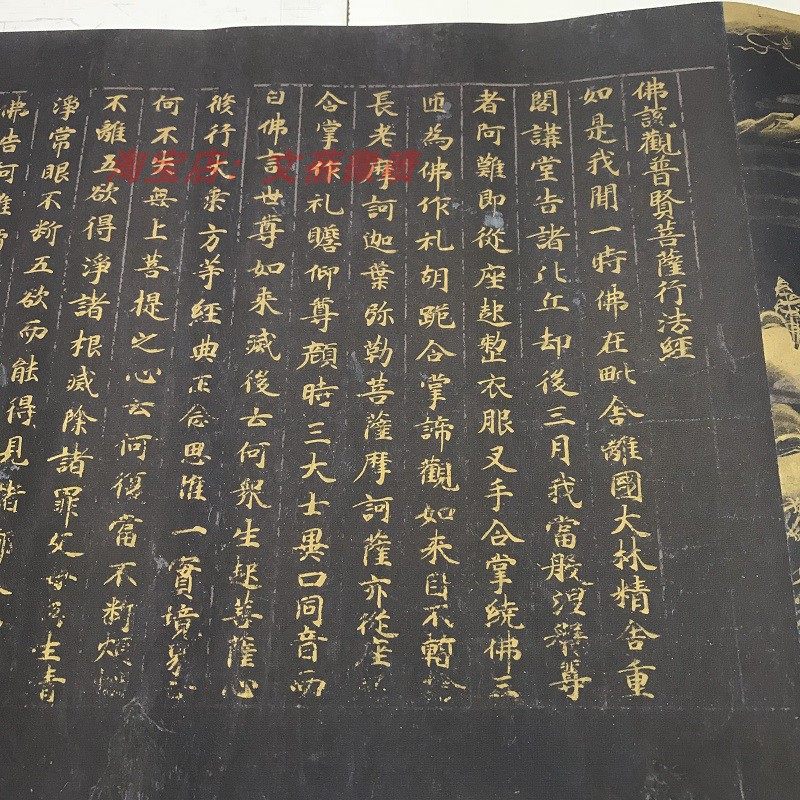 佛說觀普賢菩薩行法經
如是我聞一時佛在毗舍離國大林精舍重
閣講堂告諸比丘却後三月我當般涅槃尊
者阿難即從座起整衣服叉手合掌繞佛三
匝為佛作礼胡跪合掌諦觀如来目不轉
長老摩訶迦葉弥勒菩薩摩訶薩亦從座
合掌作礼瞻仰尊顔時三大士異口同音而
白佛言世尊如来滅後云何衆生起菩薩心
修行大乘方等經典正念思惟一實境界
何不失無上菩提之心云何復當不断煩
不離五欲得淨諸根滅除諸罪父母生青
淨常眼不断五欲而能得見諸
佛告阿難
淘宝店：